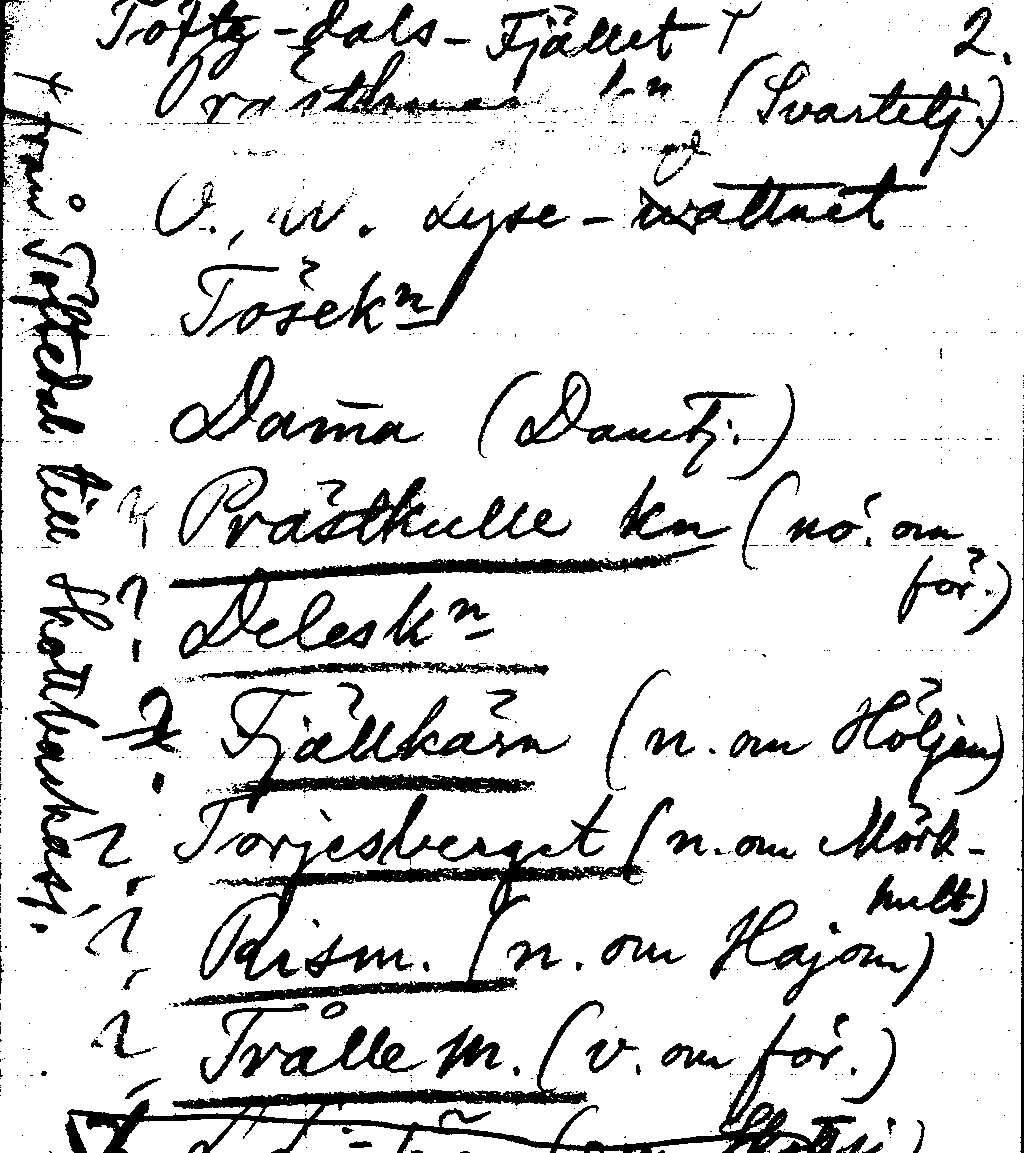 Töfte-dals-Fjället † 2.
(Svartetj.)
Ö., W. Lyse-wattnet
Tösekn
Dam̄a (Damtj.)
? Prästkulle kn (nö. om
för.)
? Deleskn
? Fjällkärn (n. om Höljen)
? Torjesberget (n. om Mörk-
hult)
? Rism. (n. om Hajom)
? Trålle m. (v. om för.)
† från Töftedal till